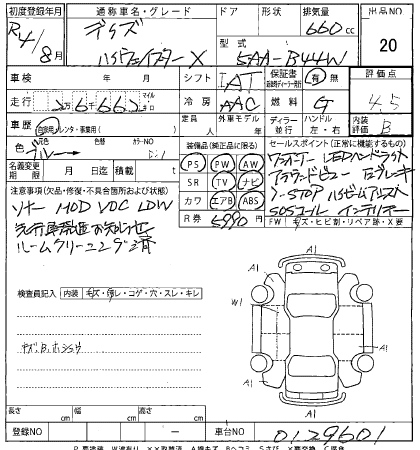 初度登録年月 通称車名・グレード ドア 形状 排気量 出品NO
R4/8月 デイズ ハイウェイスター X 660cc 20
型式 5AA-B44W
車検 年 月 シフト IAT 保証書 有 無 評価点
走行 2万6千662 マイル キロ 冷房 AAC 燃料 G 4.5
車歴 自家用・レンタ・事業用( ) 定員 人 外車モデル 年 ディーラー 並行 ハンドル 左・右 内装 B
色 元色 カラーNO
名義変更期限 月 日迄 積載 t
装備品(純正品に限る) PS PW AW SR TV ナビ カワ エアB ABS
R券 5990円
セールスポイント(正常に機能するもの)
ワンオーナー LEDヘッドライト
アラウンドビュー Eブレーキ
I-STOP ハイビームアシスト
SOSコール インテリキー
FW キズ・ヒビ割・リペア跡・X要
注意事項(欠品・修復・不具合箇所および状態)
ソナー MOD VDC LDW
先行車発進お知らせ
ルームクリーニング済
検査員記入 内装 キズ・汚レ・コゲ・穴・スレ・キレ
A1
A1 A1
W1
A1 A1
長さ cm 幅 cm 高さ cm
登録NO ー 車台NO 0129601